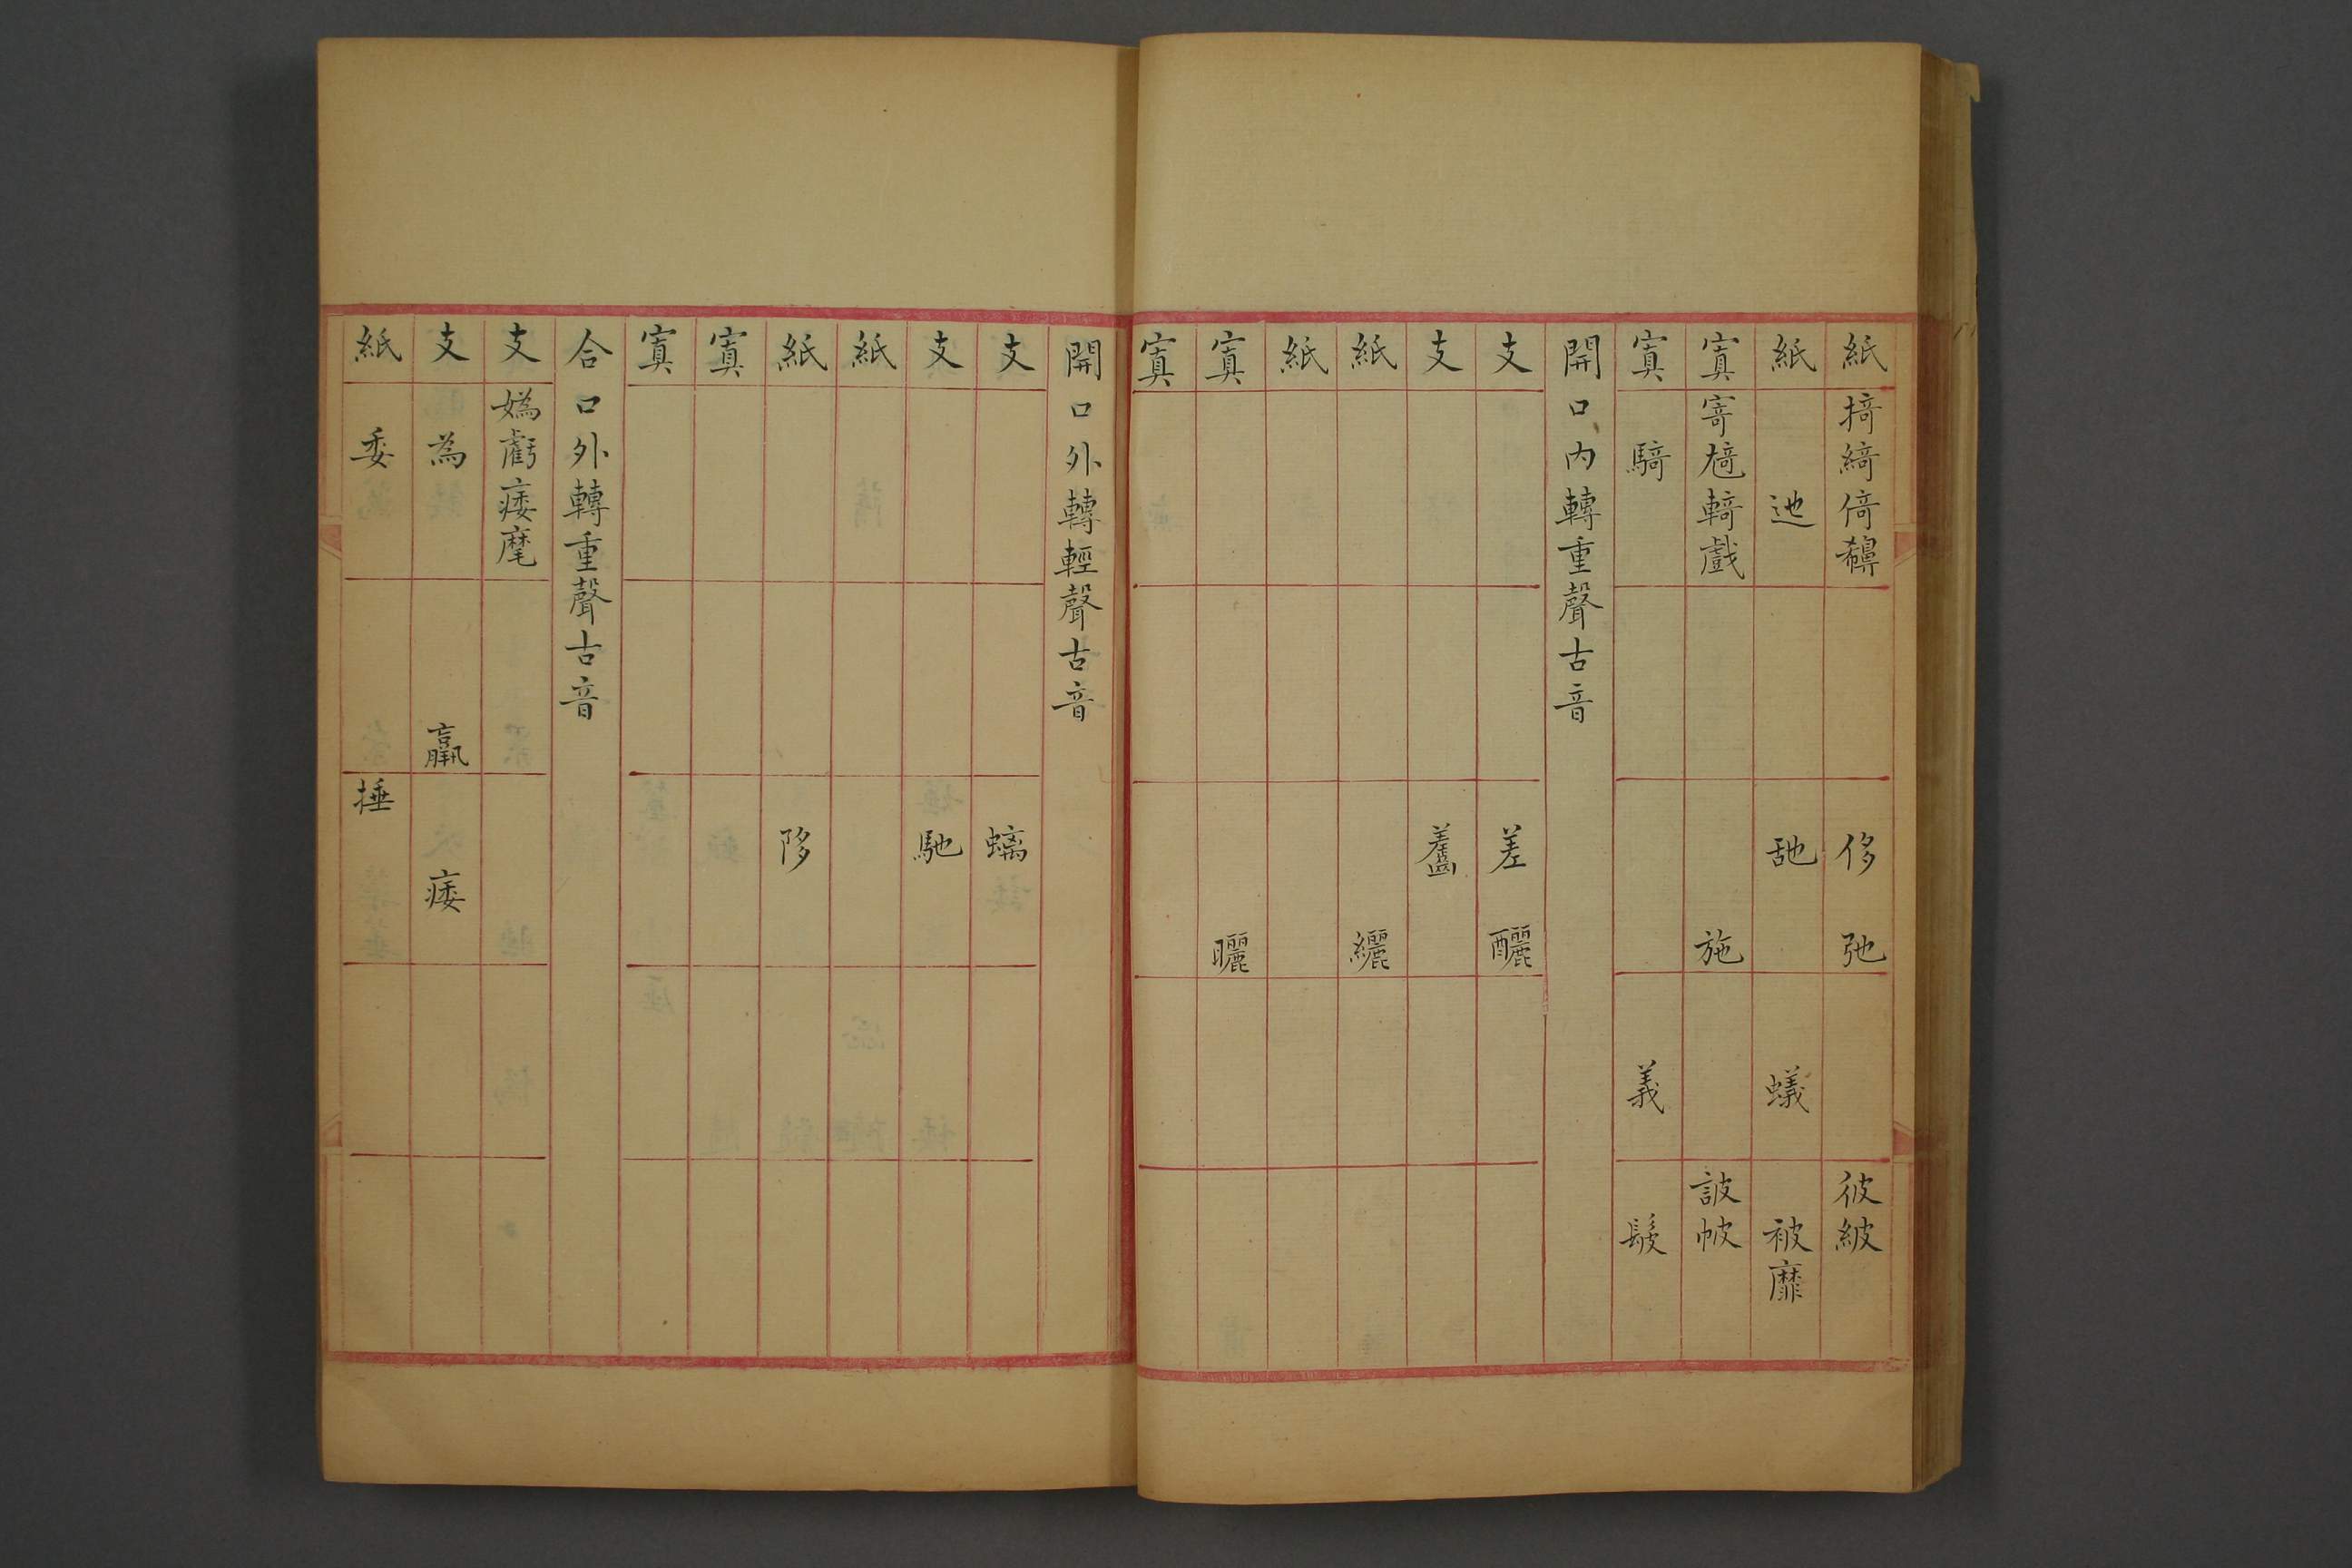 紙 掎綺倚𥠖 侈 弛 彼紴
紙 迆 䑛 蟻 被靡
寘 寄㩻輢戲 施 詖帔
寘 騎 義 髲
開口內轉重聲古音
支 差 釃
支 齹
紙 纚
紙
寘 曬
寘
開口外轉輕聲古音
支 螭
支 馳
紙
紙 陊
寘
寘
合口外轉重聲古音
支 媯虧痿麾
支 為 羸 痿
紙 委 捶